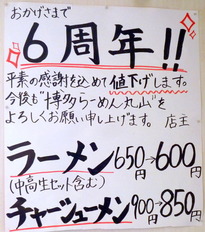 おかげさまで
6周年!!
平素の感謝を込めて値下げします。
今後も"博多らーめん丸山"を
よろしくお願い申し上げます。 店主
ラーメン650円→600円
(中高生セット含む)
チャーシューメン900円→850円